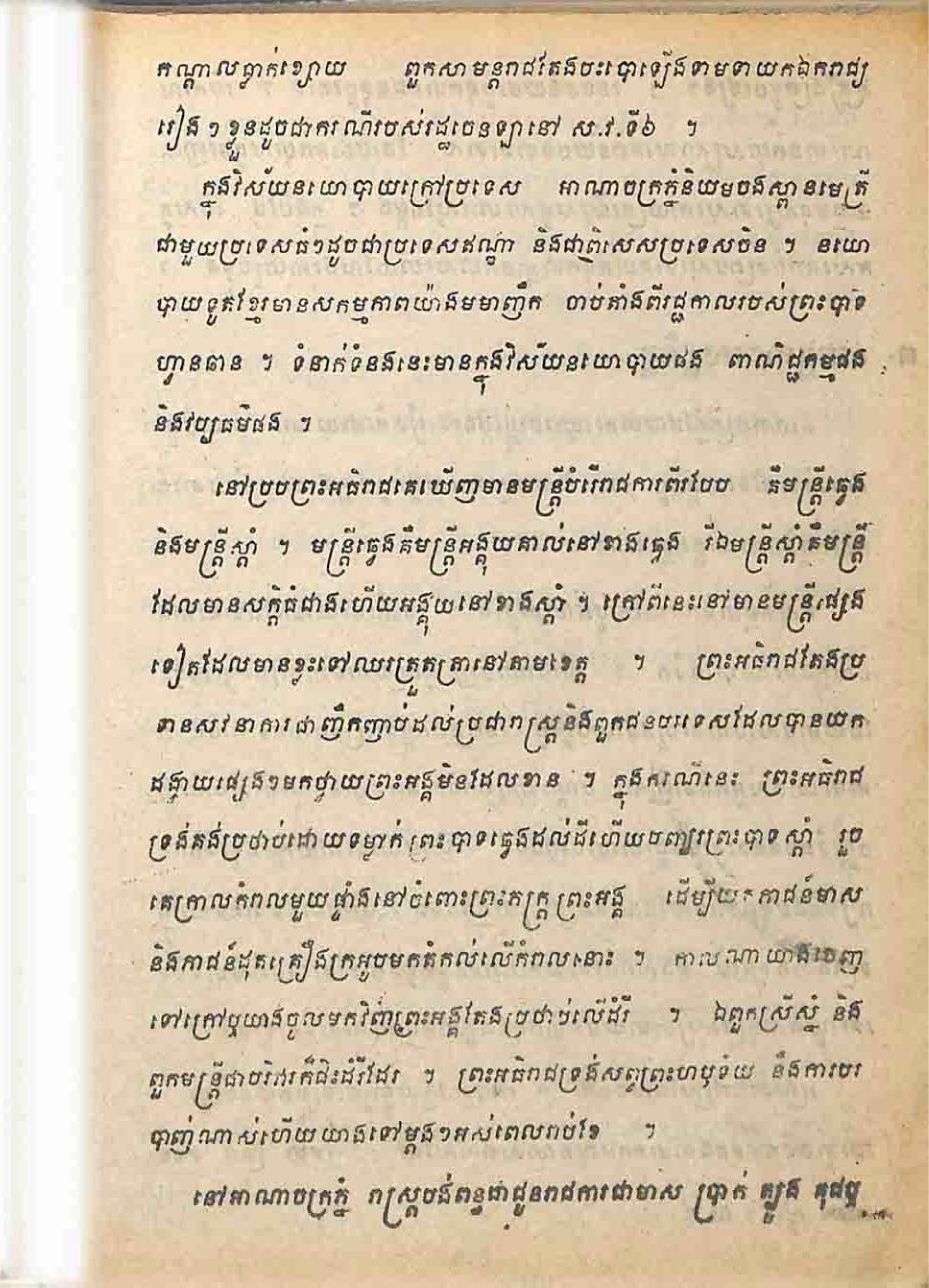 កណ្ដាលធ្លាក់ខ្សោយ ពួកសាមន្តរាជតែងបះបោឡើងទាមទាយកឯករាជ្យ
រៀងៗខ្លួនដូចជាករណីរបស់រដ្ឋចេនឡានៅ ស.វ.ទី៦ ។
ក្នុងវិស័យនយោបាយក្រៅប្រទេស អាណាចក្រភ្នំនិយមចងស្ពានមេត្រី
ជាមួយប្រទេសធំៗដូចជាប្រទេសឥណ្ឌា និងជាពិសេសប្រទេសចិន ។ នយោ
បាយទូតខ្មែរមានសកម្មភាពយ៉ាងមមាញឹក ចាប់តាំងពីរជ្ជកាលរបស់ព្រះបាទ
ហ្វានធាន ។ ទំនាក់ទំនងនេះមានក្នុងវិស័យនយោបាយផង ពាណិជ្ជកម្មផង
និងវប្បធម៌ផង ។
នៅប្រប្រះអធិរាជគេឃើញមានមន្ត្រីបំរើរាជការពីរបែប គឺមន្ត្រីឆ្វេង
និងមន្ត្រីស្ដាំ ។ មន្ត្រីឆ្វេងគឺមន្ត្រីអង្គុយគាល់នៅខាងឆ្វេង រីឯមន្ត្រីស្ដាំគឺមន្ត្រី
ដែលមានសក្ដិធំជាងហើយអង្គុយនៅខាងស្ដាំ ។ ក្រៅពីនេះនៅមានមន្ត្រីផ្សេង
ទៀតដែលមានខ្លះទៅឈរត្រួតត្រានៅតាមខេត្ត ។ ព្រះអធិរាជតែងប្រ
ទានសវនាការជាញឹកញាប់ដល់ប្រជារាស្ត្រនិងពួកជនបរទេសដែលបានយក
ដង្វាយផ្សេងៗមកថ្វាយព្រះអង្គមិនដែលខាន ។ ក្នុងករណីនេះ ព្រះអធិរាជ
ទ្រង់គង់ប្រថាប់ដោយទម្លាក់ព្រះបាទឆ្វេងដល់ដីហើយបញ្ឈរព្រះបាទស្ដាំ រួច
គេក្រាលកំរាលមួយផ្ទាំងនៅចំពោះព្រះភក្ត្រព្រះអង្គ ដើម្បីយកភាជន៍មាស
និងភាជន៍ដុតគ្រឿងក្រអូបមកតំកល់លើកំរាលនោះ ។ កាលណាយាងចេញ
ទៅក្រៅឬយាងចូលមកវិញព្រះអង្គតែងប្រថាប់លើដំរី ។ ឯពួកស្រីស្នំ និង
ពួកមន្ត្រីជាបរិវារក៏ជិះដំរីដែរ ។ ព្រះអធិរាជទ្រង់សព្វព្រះហឫទ័យ នឹងការបរ
បាញ់ណាស់ហើយយាងទៅម្ដងៗអស់ពេលរាប់ខែ ។
នៅអាណាចក្រភ្នំ រាស្ត្របង់ពន្ធជាជូនរាជការជាមាស ប្រាក់ ត្បូង គុជឬ